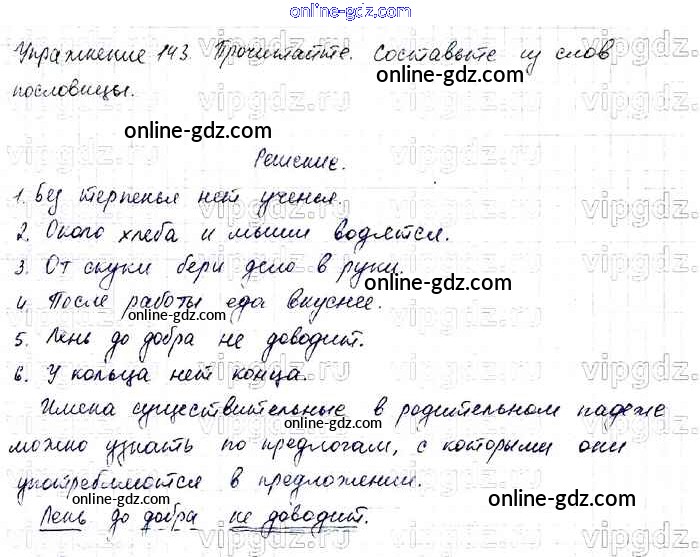 online-gdz.com
Упражнение 143. Прочитайте. Составьте из слов
online-gdz.com
пословицы.
online-gdz.com
Решение.
1. Без терпенья нет ученья.
2. Около хлеба и мыши водятся.
3. От скуки бери дело в руки.
online-gdz.com
4. После работы еда вкуснее.
online-gdz.com
5. Лень до добра не доводит.
online-gdz.com
6. У кольца нет конца.
online-gdz.com
Имена существительные в родительном падеже
можно узнать по предлогам, с которыми они
употребляются в предложении.
online-gdz.com
online-gdz.com
Лень до добра не доводит.
online-gdz.com
vipgdz.ru